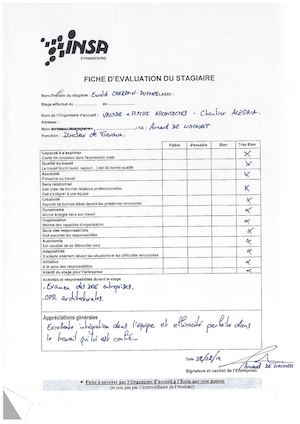 INSA
STRASBOURG
FICHE D'EVALUATION DU STAGIAIRE
Nom-Prénom du stagiaire : Ewald CHARRON-DUPONT Classe :
Stage effectué du au
Nom de l'Organisme d'accueil : VALODE & PISTRE ARCHITECTES - Chantier ALEGRIA
Adresse :
Arnaud DE LIOCOURT
Fonction : Directeur de Travaux
Faible Passable Bien Très Bien
Capacité à s'exprimer
Clarté de concision dans l'expression orale X
Qualité du travail
Le travail fourni (seul, rapport...) est de bonne qualité X
Assiduité
Présence au travail X
Sens relationnel
Sait créer de bonnes relations professionnelles X
Sait s'intégrer à une équipe
Créativité
Apporte de bonnes idées devant les problèmes rencontrés X
Dynamisme
Bonne énergie dans son travail X
Organisation
Montre des capacités d'organisation X
Sens des responsabilités
Sait assumer les responsabilités X
Autonomie
Est capable de se débrouiller seul X
Adaptabilité
S'adapte aisément devant les situations et les difficultés rencontrées X
Initiative
A le sens des responsabilités X
Intérêt du stage pour l'entreprise X
Activités et responsabilités durant le stage
- Examen des DOE entreprises.
- OPR architecturales.
Appréciations générales
Excellente intégration dans l'équipe et efficacité parfaite dans
le travail qui lui est confié.
Date
Arnaud DE LIOCOURT
Signature et cachet de l'Entreprise
Fiche à envoyer par l'Organisme d'accueil à l'École par voie postale
(et non pas par l'intermédiaire de l'Étudiant)